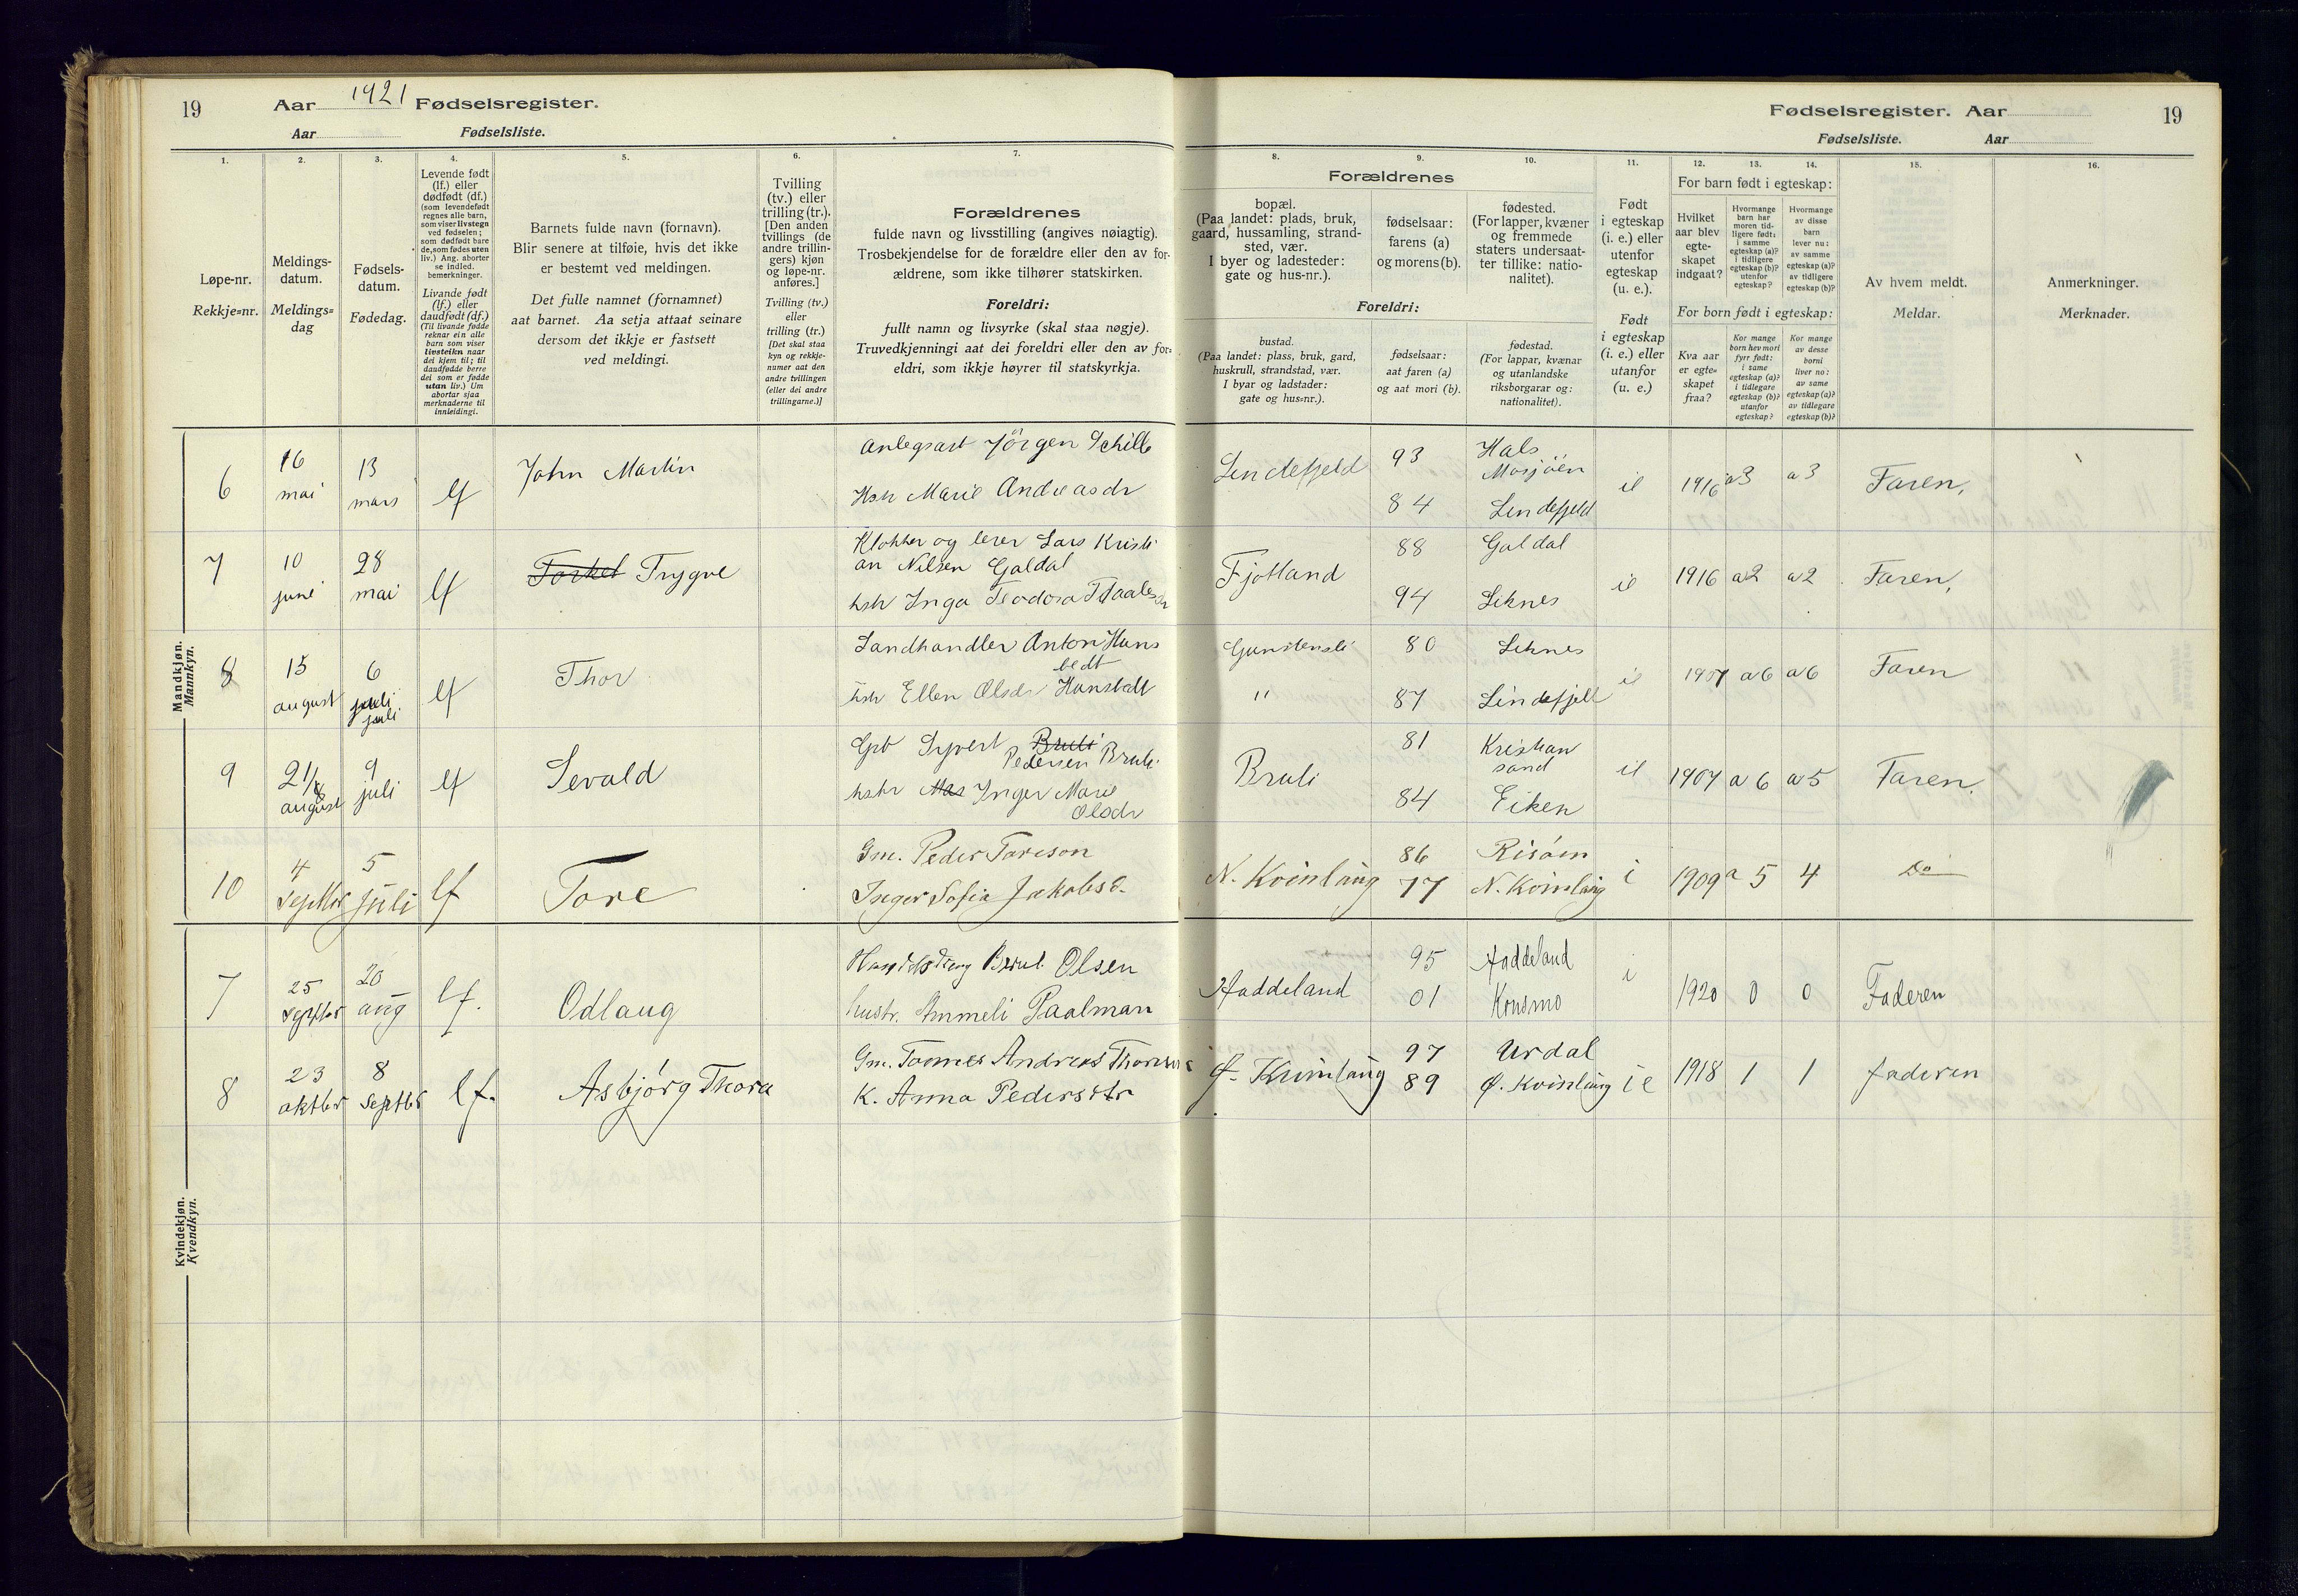 19 Aar 1921 Fødselsregister.
Aar Fødselsliste.
Fødselsregister. Aar 19
Fødselsliste. Aar
1.
Løpe-nr.
Rekkje=nr.
2.
Meldings-
datum.
Meldings=
dag
3.
Fødsels-
datum.
Fødedag.
4.
Levende født
(lf.) eller
dødfødt (df.)
(som levendefødt
regnes alle barn,
som viser livstegn
ved fødselen;
som dødfødt bare
de, som fødes uten
liv.) Ang. aborter
se indled.
bemerkninger.
Livande født
(lf.) eller
daudfødt (df.)
(Til livande fødde
reknar ein alle
barn som viser
livsteikn naar
dei kjem til; til
daudfødde berre
dei som er fødde
utan liv.) Um
abortar sjaa
merknaderne til
innleidingi.
5.
Barnets fulde navn (fornavn).
Blir senere at tilføie, hvis det ikke
er bestemt ved meldingen.
Det fulle namnet (fornamnet)
aat barnet. Aa setja attaat seinare
dersom det ikkje er fastsett
ved meldingi.
6.
Tvilling
(tv.) eller
trilling (tr.).
[Den anden
tvillings (de
andre trillin-
gers) kjøn
og løpe-nr.
anføres.]
Tvilling (tv.)
eller
trilling (tr.)
[Det skal staa
kyn og rekkje-
numer aat den
andre tvillingen
(eller dei andre
trillingarne.)]
7.
Forældrenes
fulde navn og livsstilling (angives nøiagtig).
Trosbekjendelse for de forældre eller den av for-
ældrene, som ikke tilhører statskirken.
Foreldri:
fullt namn og livsyrke (skal staa nøgje).
Truvedkjenningi aat dei foreldri eller den av for=
eldri, som ikkje høyrer til statskyrkja.
Forældrenes
8.
bopæl.
(Paa landet: plads, bruk,
gaard, hussamling, strand-
sted, vær.
I byer og ladesteder:
gate og hus-nr.).
9.
fødselsaar:
farens (a)
og morens (b).
10.
fødested.
(For lapper, kvæner
og fremmede
staters undersaat-
ter tillike: natio-
nalitet).
Foreldri:
bustad.
(Paa landet: plass, bruk, gard,
huskrull, strandstad, vær.
I byar og ladstader:
gate og hus=nr.).
fødselsaar:
aat faren (a)
og aat mori (b).
fødestad.
(For lappar, kvænar
og utanlandske
riksborgarar og:
nationalitet).
11.
Født
i egteskap
(i. e.) eller
utenfor
egteskap
(u. e.).
Født
i egteskap
(i. e.) eller
utanfor
(u. e.)
For barn født i egteskap:
12.
Hvilket
aar blev
egte-
skapet
indgaat?
13.
Hvormange
barn har
moren tid-
ligere født:
i samme
egteskap (a)?
i tidligere
egteskap (b)?
utenfor
egteskap?
14.
Hvormange
av disse
barn
lever nu:
av samme
egteskap (a)?
av tidligere
egteskap (b)?
For born født i egteskap:
Kva aar
er egte=
skapet
fraa?
Kor mange
born hev mori
fyrr født:
i same
egteskap (a)?
i tidlegare
egteskap (b)?
utanfor
egteskap?
Kor mange
av desse
borni
liver no:
av same
egteskap (a)?
av tidlegare
egteskap (b)?
15.
Av hvem meldt.
Meldar.
16.
Anmerkninger.
Merknader.
Mandkjøn.
Mannkyn.
6 16 mai 13 mars lf John Martin
Anlegsarb Jörgen Schille
Hstr Marie Andreasdr
Lindefjeld 93 Hals Mosjöen
84 Lindefjeld
ie 1916 a3 a3 Faren,
7 10 juni 28 mai lf Torkel Trygve
Klokker og lerer Lars Kristi
an Nilsen Galdal
hstr Inga Teodora
Fjotland 88 Galdal
94 Liknes
ie 1916 a2 a2 Faren,
8 15 august 6 juli juli lf Thor
Landhandler Anton Huns
bedt
hstr Ellen Olsdr Hunsbedt
80 Liknes
" 87 Lindefjell
ie 1907 a6 a6 Faren
9 21/8 august 9 juli lf Sevald
Gbr Syvert Bruli
Pedersen Bruli
hstr Inger Marie
Olsdr
Bruli 81 Kristian
sand
84 Eiken
ie 1907 a6 a5 Faren.
10 4 Septbr 5 juli lf Tore
Gm. Peder Toreson
Inger Sofia Jakobsd.
N. Kvinlaug 86 Risöen
77 N. Kvinlaug
i 1909 a 5 4 Do
Kvindekjøn.
Kvendkyn.
7 25 Septbr 20 aug lf. Odlaug
Olsen
hustr. Ammeli Paalman
Haddeland 95 Haddeland
01 Konsmo
i 1920 0 0 Faderen
8 23 oktbr 8 Septbr lf. Asbjørg Thora
Gm. Tønnes Andreas Thorsen
K. Anna Pedersdtr
Ø. Kvinlaug 97 Urdal
89 Ø. Kvinlaug
ie 1918 1 1 faderen